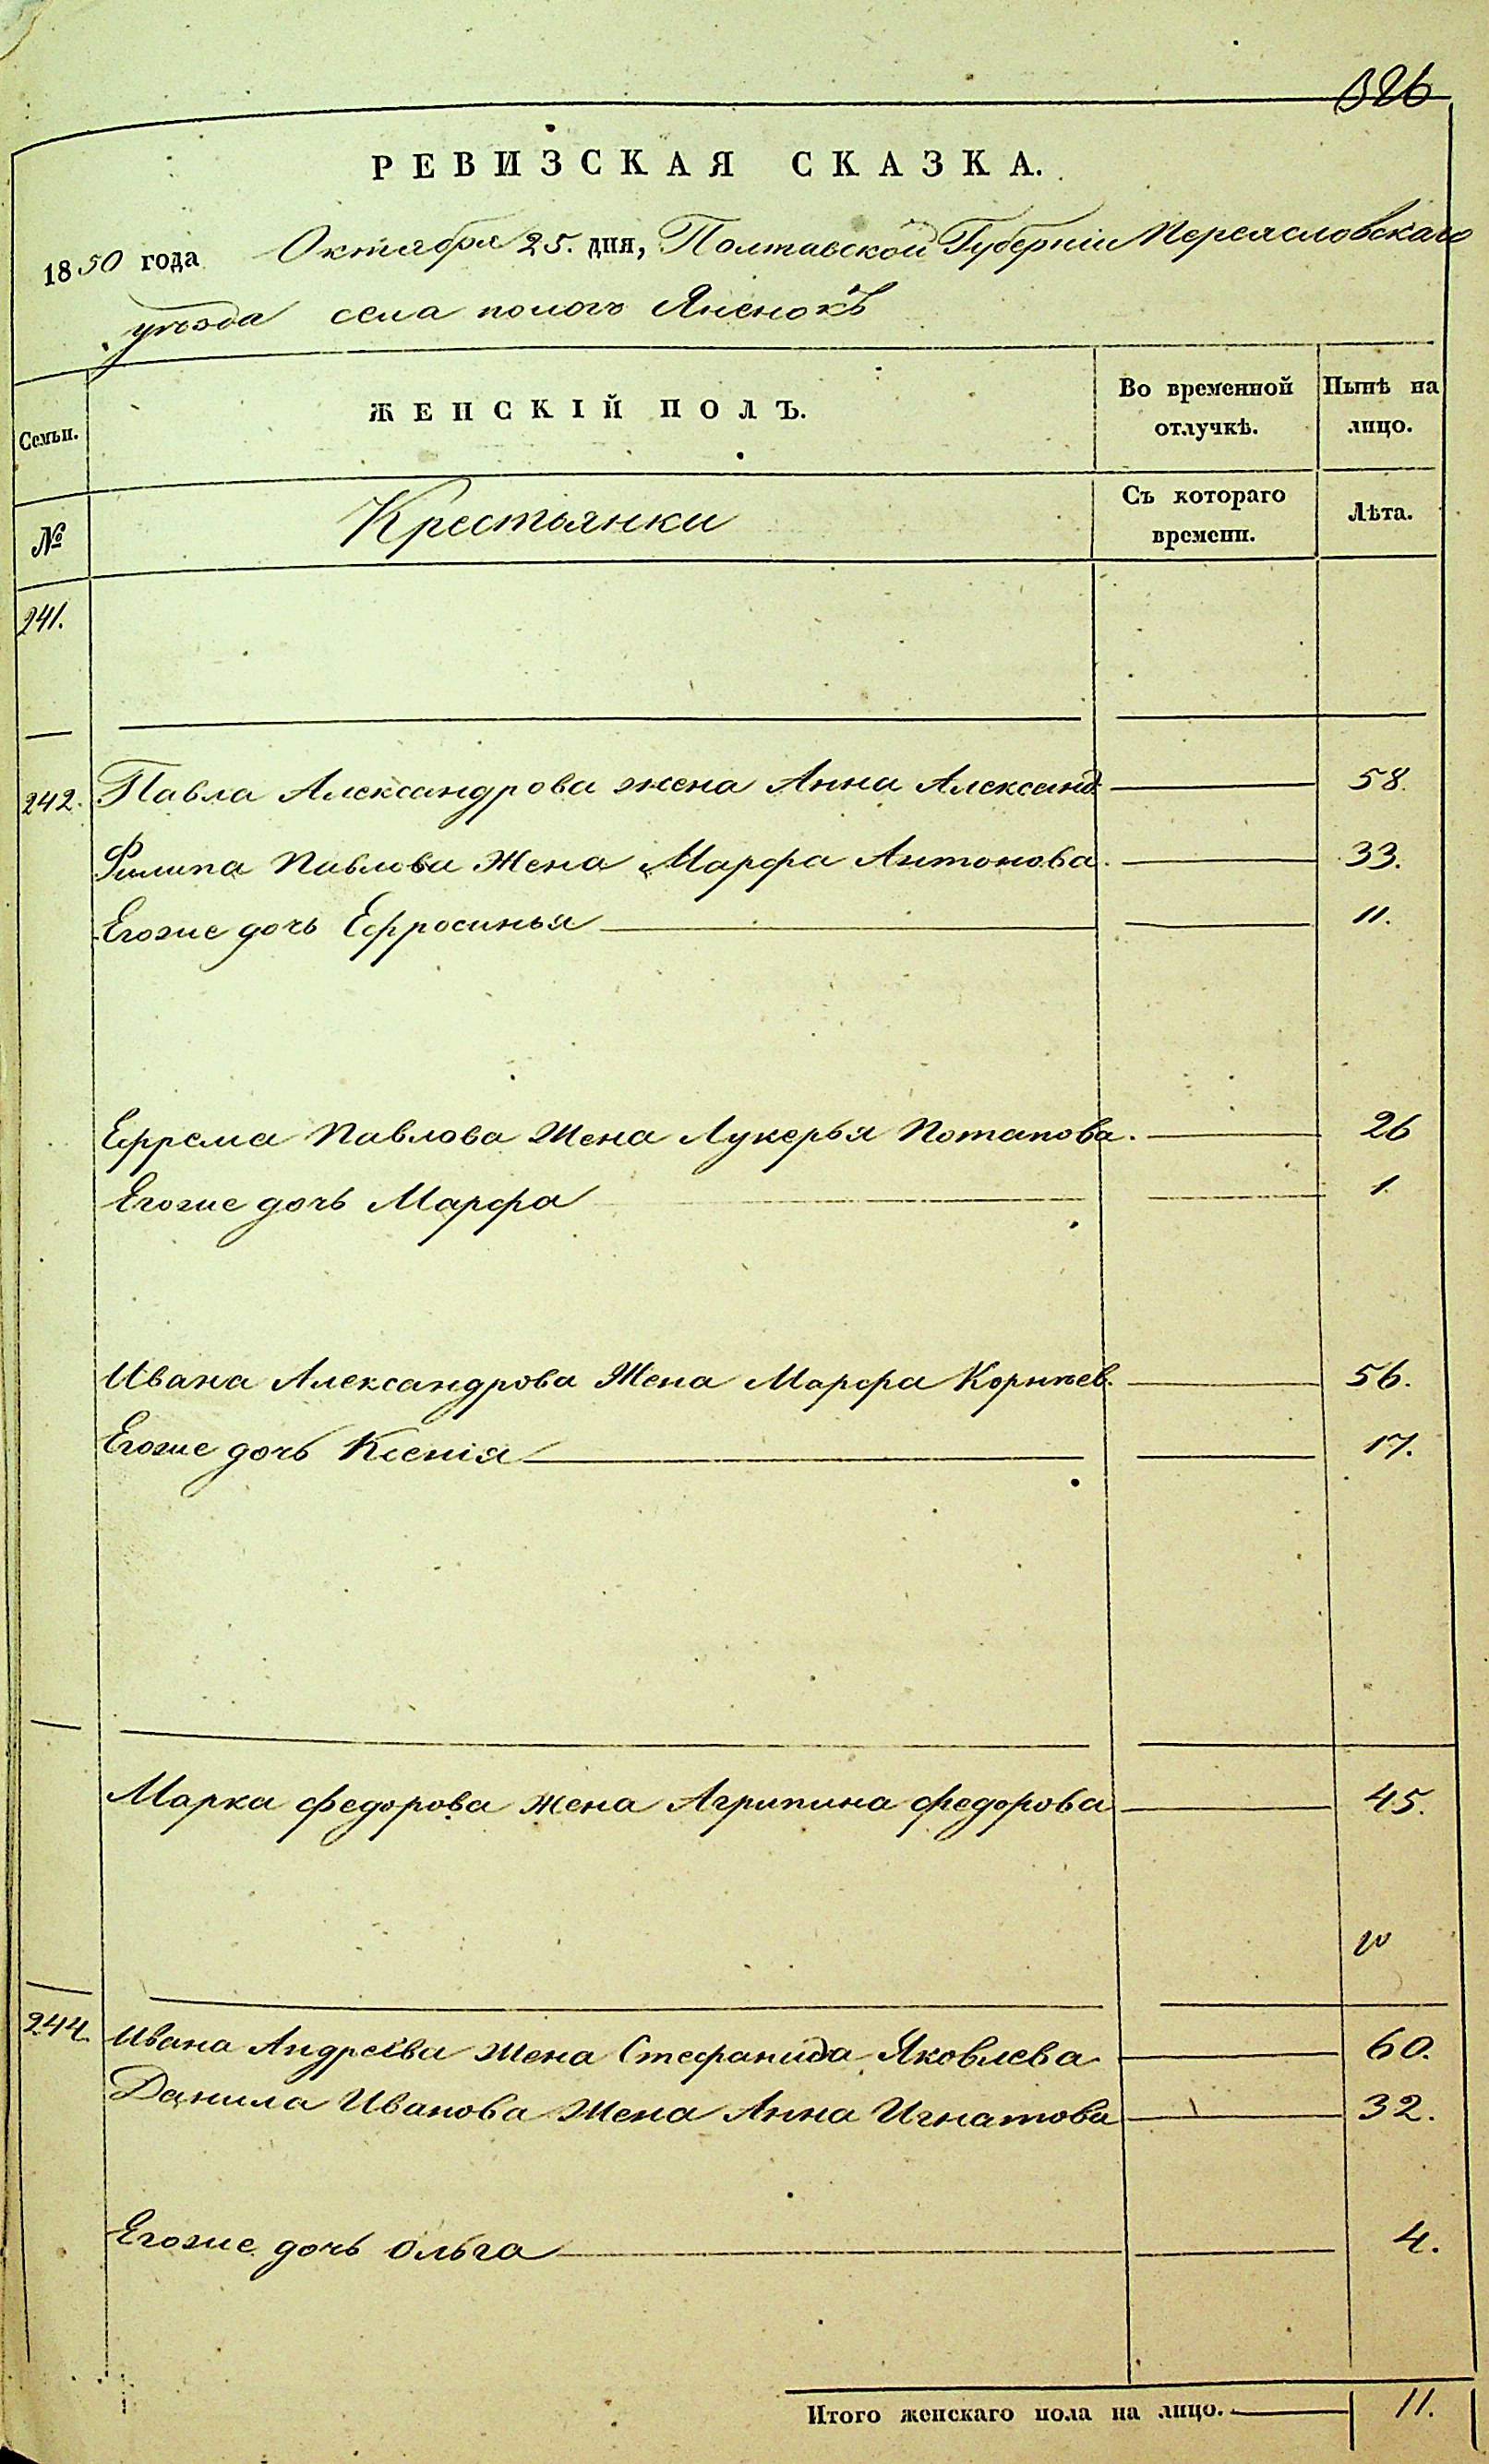 326
РЕВИЗСКАЯ СКАЗКА.
1850 года Октября 25. дня, Полтавской Губерніи Переясловскаго
уѣзда села Яненокъ
Семьи.
ЖЕНСКІЙ ПОЛЪ.
Во временной отлучкѣ.
Нынѣ на лицо.
№
Крестьянки
Съ котораго времени.
Лѣта.
241.
242. Павла Александрова жена Анна Александ. 58.
Филипа Павлова Жена Марфа Антонова. 33.
Егоже дочь Ефросинья 11.
Ефрема Павлова Жена Лукерья Потапова. 26
Егоже дочь Марфа 1.
Ивана Александрова Жена Марфа Корнѣев. 56.
Егоже дочь Ксенія 17.
Марка Федорова Жена Агрипина Федорова 45.
244. Ивана Андреева Жена Стефанида Яковлева 60.
Данила Иванова Жена Анна Игнатова 32.
Егоже дочь Ольга 4.
Итого женскаго пола на лицо. 11.